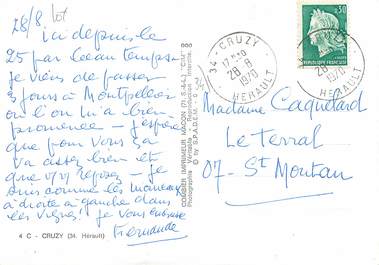 28/8 lot
Ici depuis le
25 par beau temps
je viens de passer
3 jours à Montpellier
où l'on m'a bien
promenée - j'espère
que pour vous ça
va assez bien et
que vous reposez - je
suis comme les moineaux
à droite à gauche dans
les vignes! je vous embrasse
Fernande
4 C - CRUZY (34. Hérault)
COMBIER IMPRIMEUR MACON (71. S.-&-L.) "CIM"
Photographie Véritable - Reproduction Interdite
© by S.P.A.D.E.M.
34 - CRUZY
28-8
1970
HERAULT
34 - CRUZY
28-8
1970
HERAULT
0,30
REPUBLIQUE FRANCAISE
Madame Caquetard
Le Terral
07 - St Montan